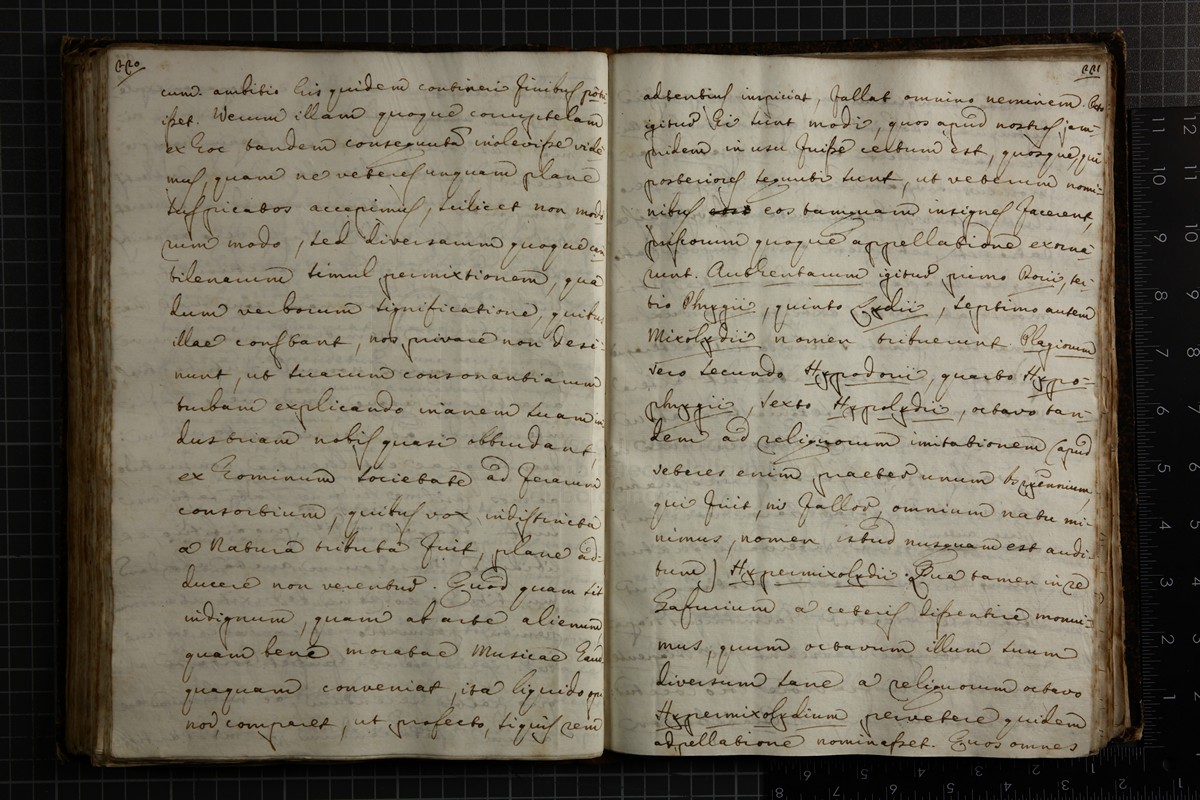 220
cum. ambitio eius quidem contineri finibus potu-
isset. Verum illam quoque corruptelam
ex hoc tandem consequuta inolevisse vide-
mus, quam ne veteres unquam plane
suspicatos accepimus, scilicet non modo-
rum modo, sed diversarum quoque can-
tilenarum simul permixtionem, qua
dum verborum significatione, quibus
illae constant, nos privare non desi-
nunt, ut suarum consonantiarum
turbam explicando inanem suam in-
dustriam nobis quasi obtrudant,
ex hominum societate ad ferarum
consortium, quibus vox indistincta
a Natura tributa fuit, plane ad-
ducere non verentur. Quod quam sit
indignum, quam ab arte alienum,
quam bene moratae Musicae haud
quaquam conveniat, ita liquido opi-
nor, comparet, ut profecto, siquis rem
221
adtentius inspiciat, fallat omnino neminem.
igitur hi sunt modi, quos apud nostros jam-
pridem in usu fuisse certum est, quosque, qui
posteriores sequuti sunt, ut veterum nomi-
nibus eos tamquam insignes facerent,
priscorum quoque appellatione exorna-
runt. Authentarum igitur primo Dorii, ter-
tio Phrygii, quinto Lydii, septimo autem
Mixolydii nomen tribuerunt Plagiorum
vero secundo Hypodorii, quarto Hypo-
phrygii, sexto Hypolydii, octavo tan-
dem ad reliquorum imitationem (apud
veteres enim praeter unum Bryennium,
qui fuit, ni fallor, omnium natu mi-
nimus, nomen istud nusquam est audi-
tum) Hypermixolydii. Qua tamen in re
Gafurium a ceteris dissentire monui-
mus, quum octavum illum suum
diversum sane a reliquorum octavo
Hypermixolydium pervetere quidem
adpellatione nominasset. Quos omnes